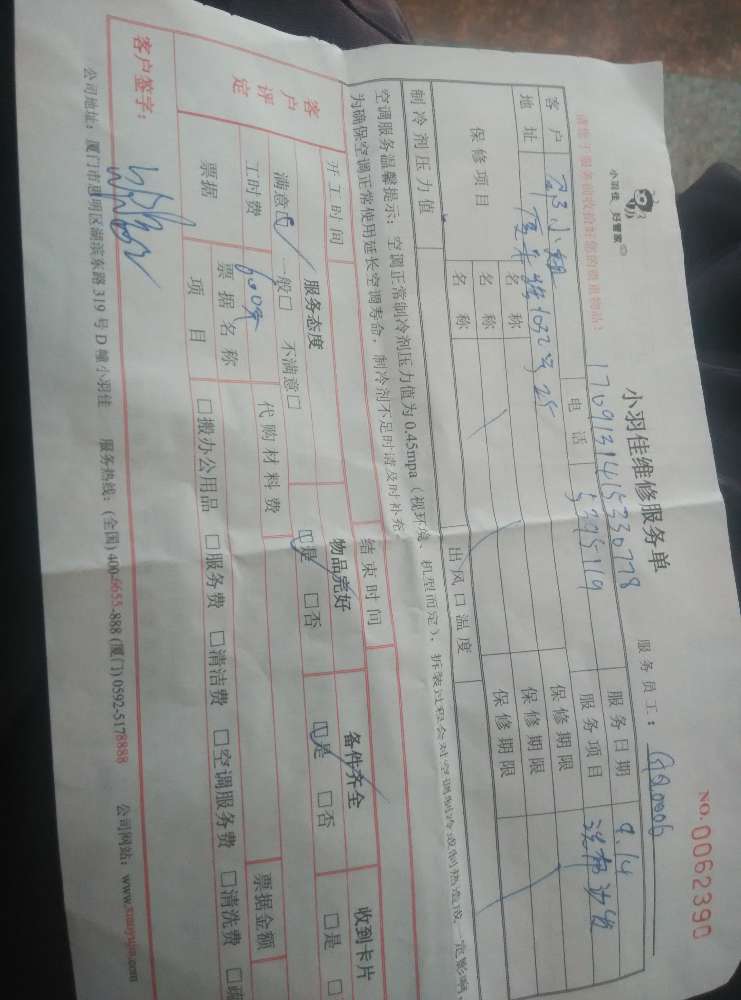 小羽佳 好管家
小羽佳维修服务单
NO.0062390
请您于服务前收拾好您的贵重物品！
1709131415330778
服务员工：
客户
小姐
电话
5395169
服务日期
9.14
地址
服务项目
保修项目
名称
保修期限
名称
保修期限
名称
保修期限
制冷剂压力值
出风口温度
空调服务温馨提示：空调正常制冷剂压力值为 0.45mpa（视环境、机型而定），拆装过程会对空调制冷或制热造成一定影响，
为确保空调正常使用延长空调寿命，制冷剂不足时请及时补充
开工时间
结束时间
客户评定
服务态度
物品完好
备件齐全
收到卡片
满意□ 一般□ 不满意□
□是 □否
□是 □否
□是 □
工时费
600元
代购材料费
票据
票据名称
票据金额
项目
□搬办公用品 □服务费 □清洁费 □空调服务费 □清洗费 □疏
客户签字：
公司地址：厦门市思明区湖滨东路 319 号 D 幢小羽佳 服务热线：(全国) 400-6655-888 (厦门) 0592-5178888 公司网站：www.xiaoyujia.com